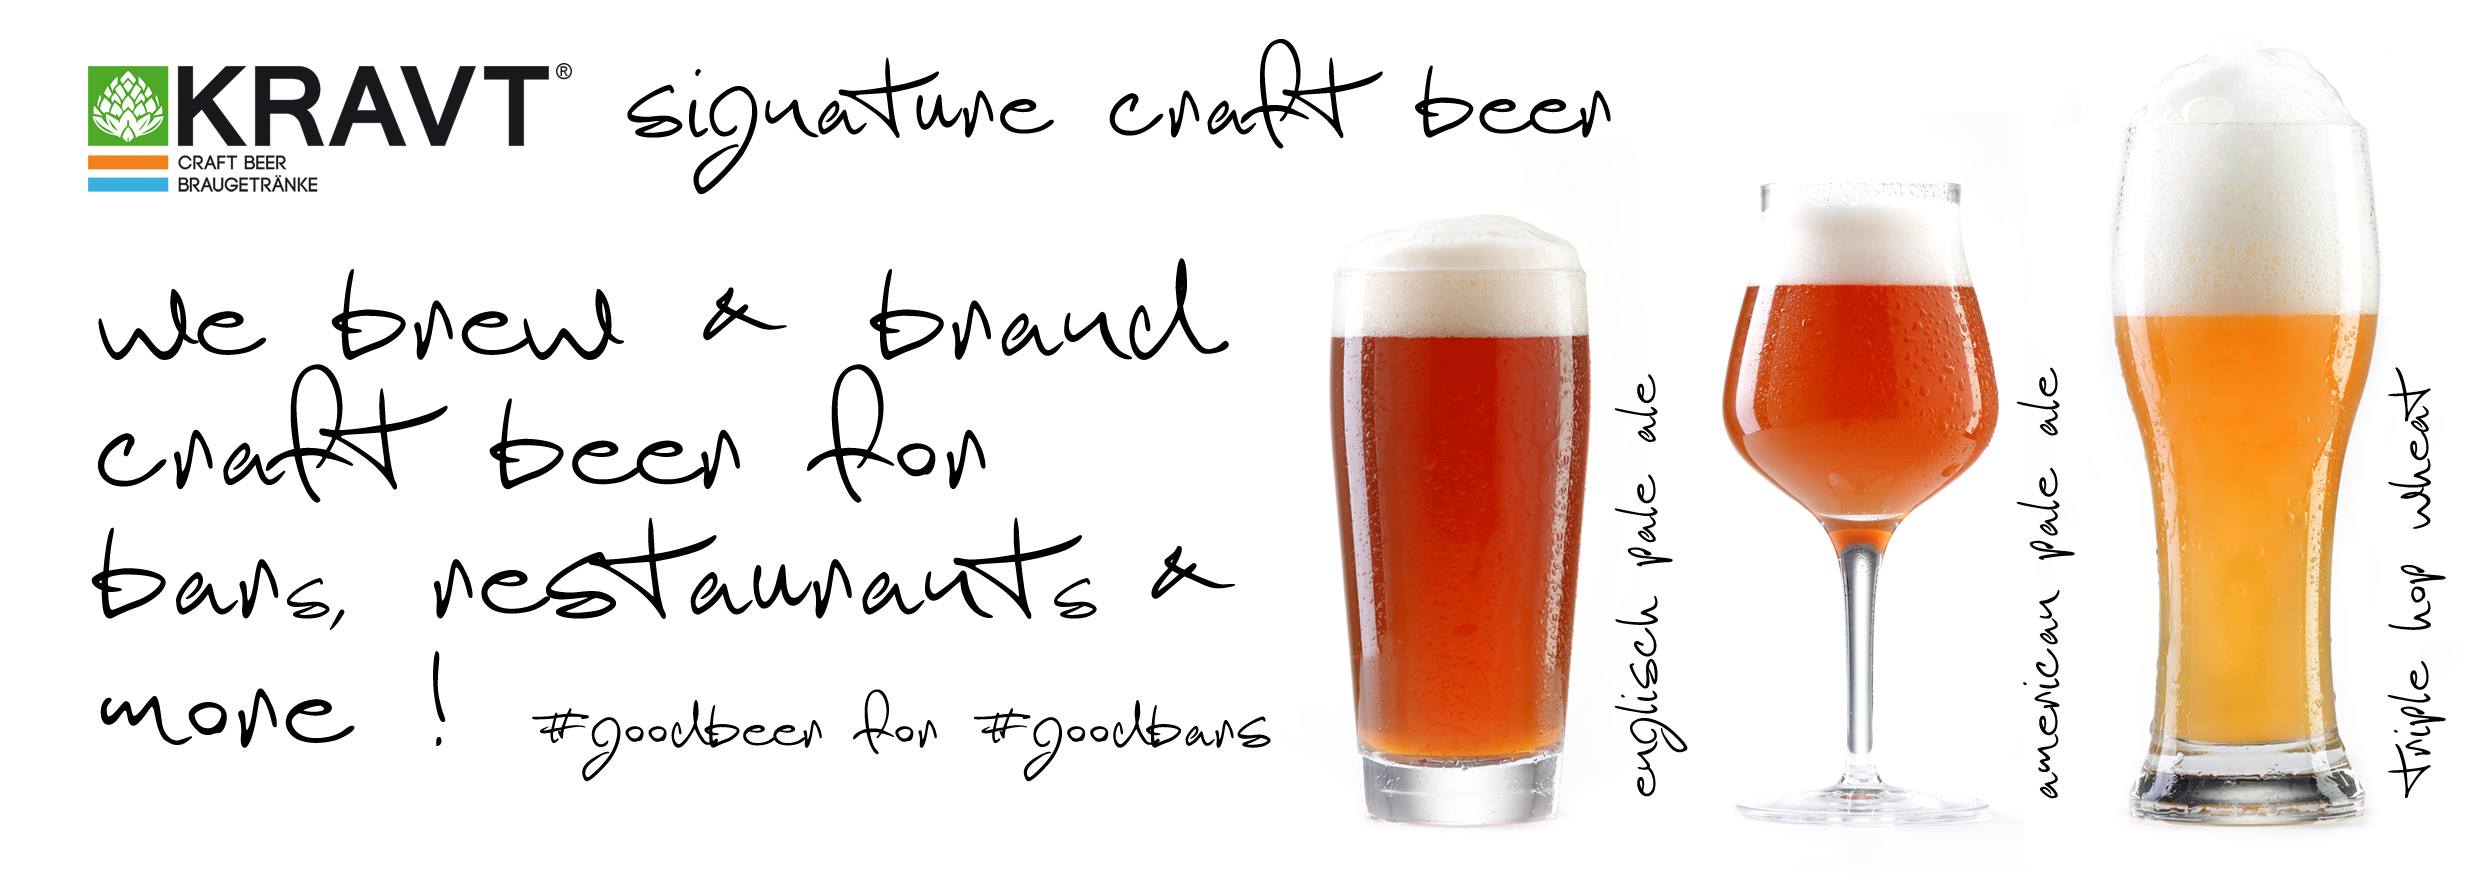 KRAVT®
CRAFT BEER
BRAUGETRÄNKE
signature craft beer
we brew & brand
craft beer for
bars, restaurants &
more !
#goodbeer for #goodbars
englisch pale ale
american pale ale
triple hop wheat